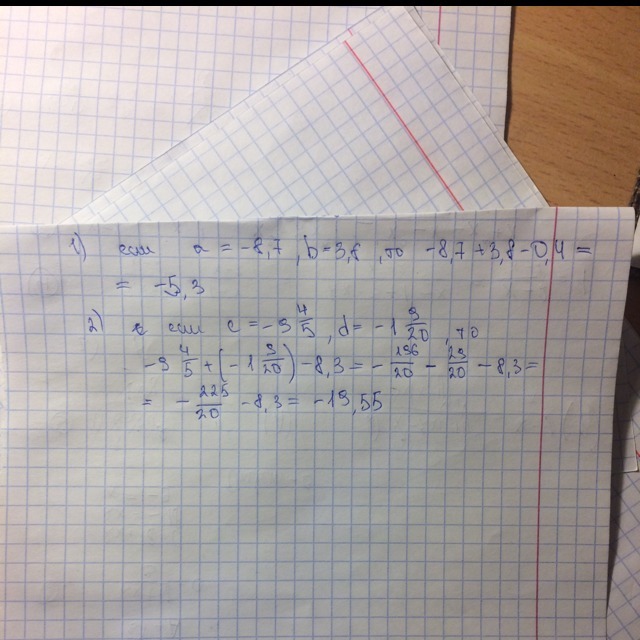 1) если a = -8,7, b = 3,8, то -8,7 + 3,8 - 0,4 =
= -5,3
2) если c = -9 4/5, d = -1 9/20, то
-9 4/5 + (-1 9/20) - 8,3 = - 196/20 - 29/20 - 8,3 =
= - 225/20 - 8,3 = -19,55